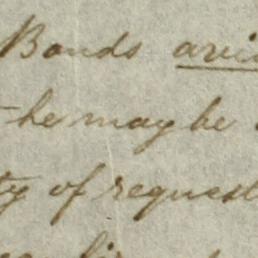 Bonds
he may be
ty of request